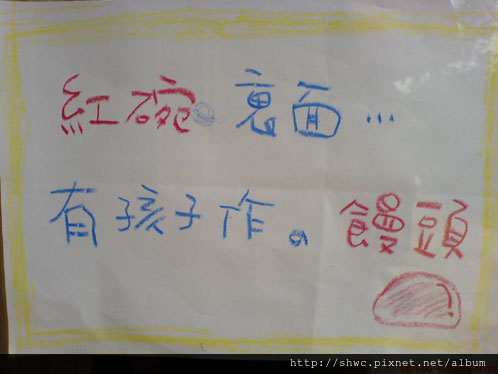 紅碗裏面…
有孩子作。饅頭
http://shwc.pixnet.net/album